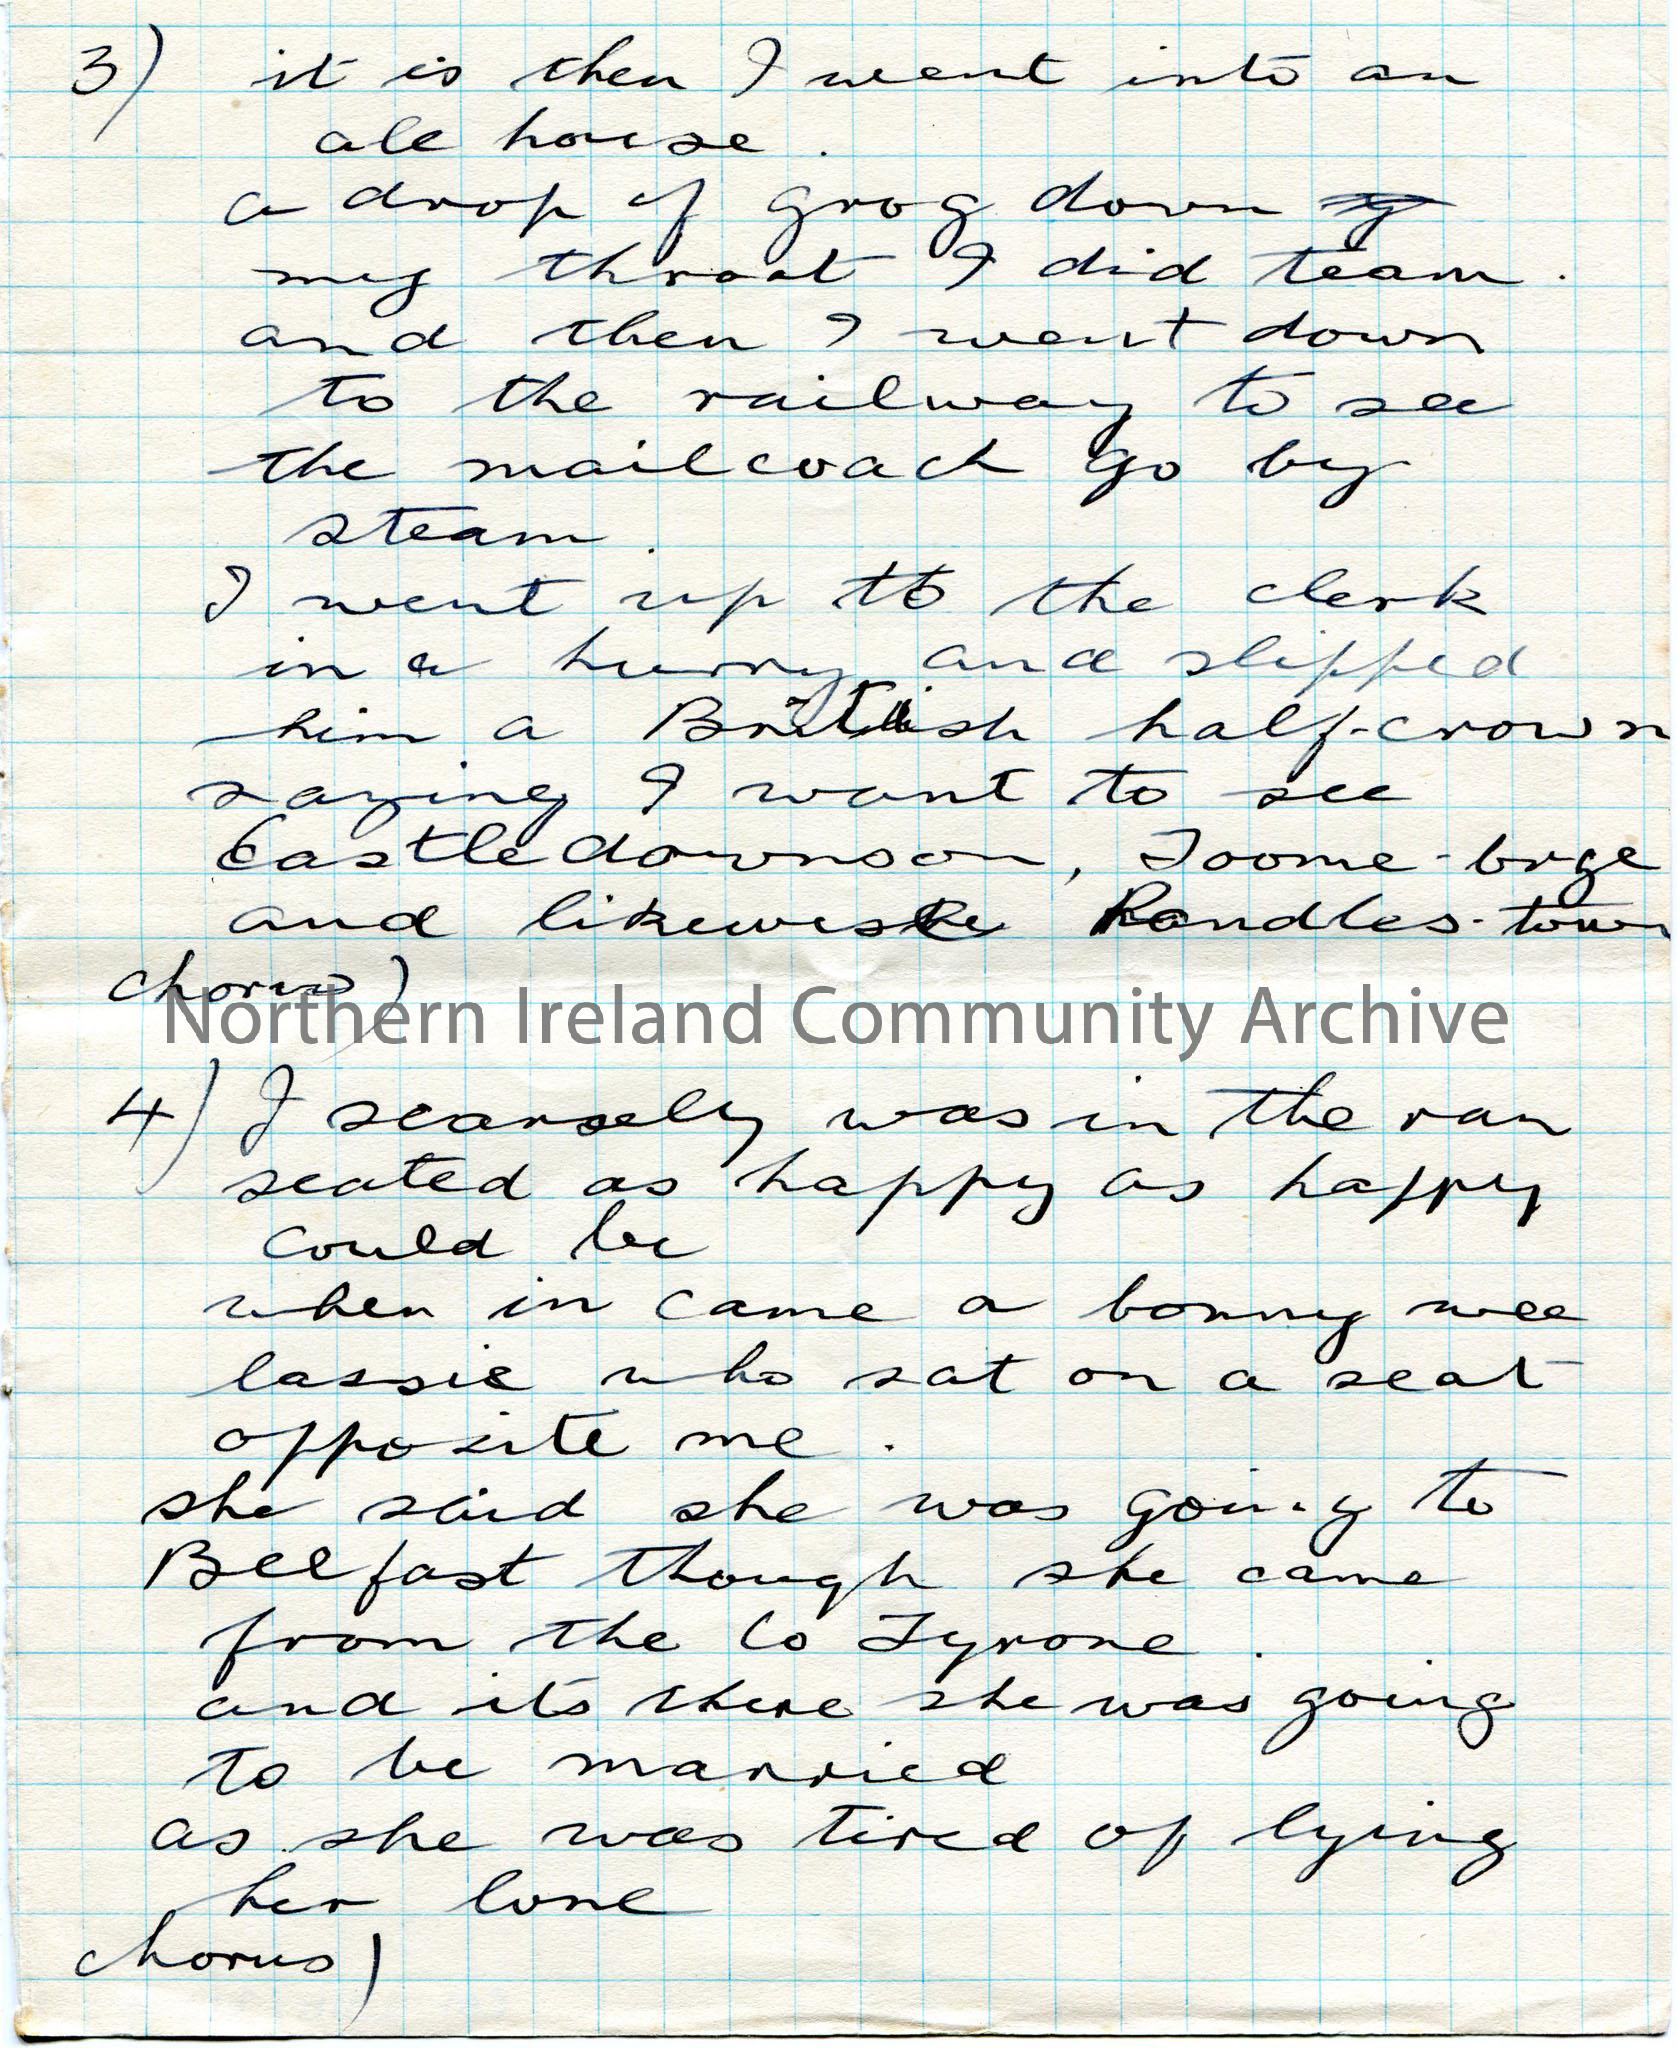 3) it is then I went into an
ale house.
a drop of grog down
my throat I did team.
and then I went down
to the railway to see
the mailcoach go by
steam.
I went up to the clerk
in a hurry and slipped
him a British half-crown
saying I want to see
Castledownson, Toome-brge
and likewise Randles-town
chorus)
Northern Ireland Community Archive
4) I scarsely was in the van
seated as happy as happy
could be
when in came a bonny wee
lassie who sat on a seat
opposite me.
she said she was going to
Belfast though she came
from the Co Tyrone.
and its there she was going
to be married
as she was tired of lying
her lone
chorus)